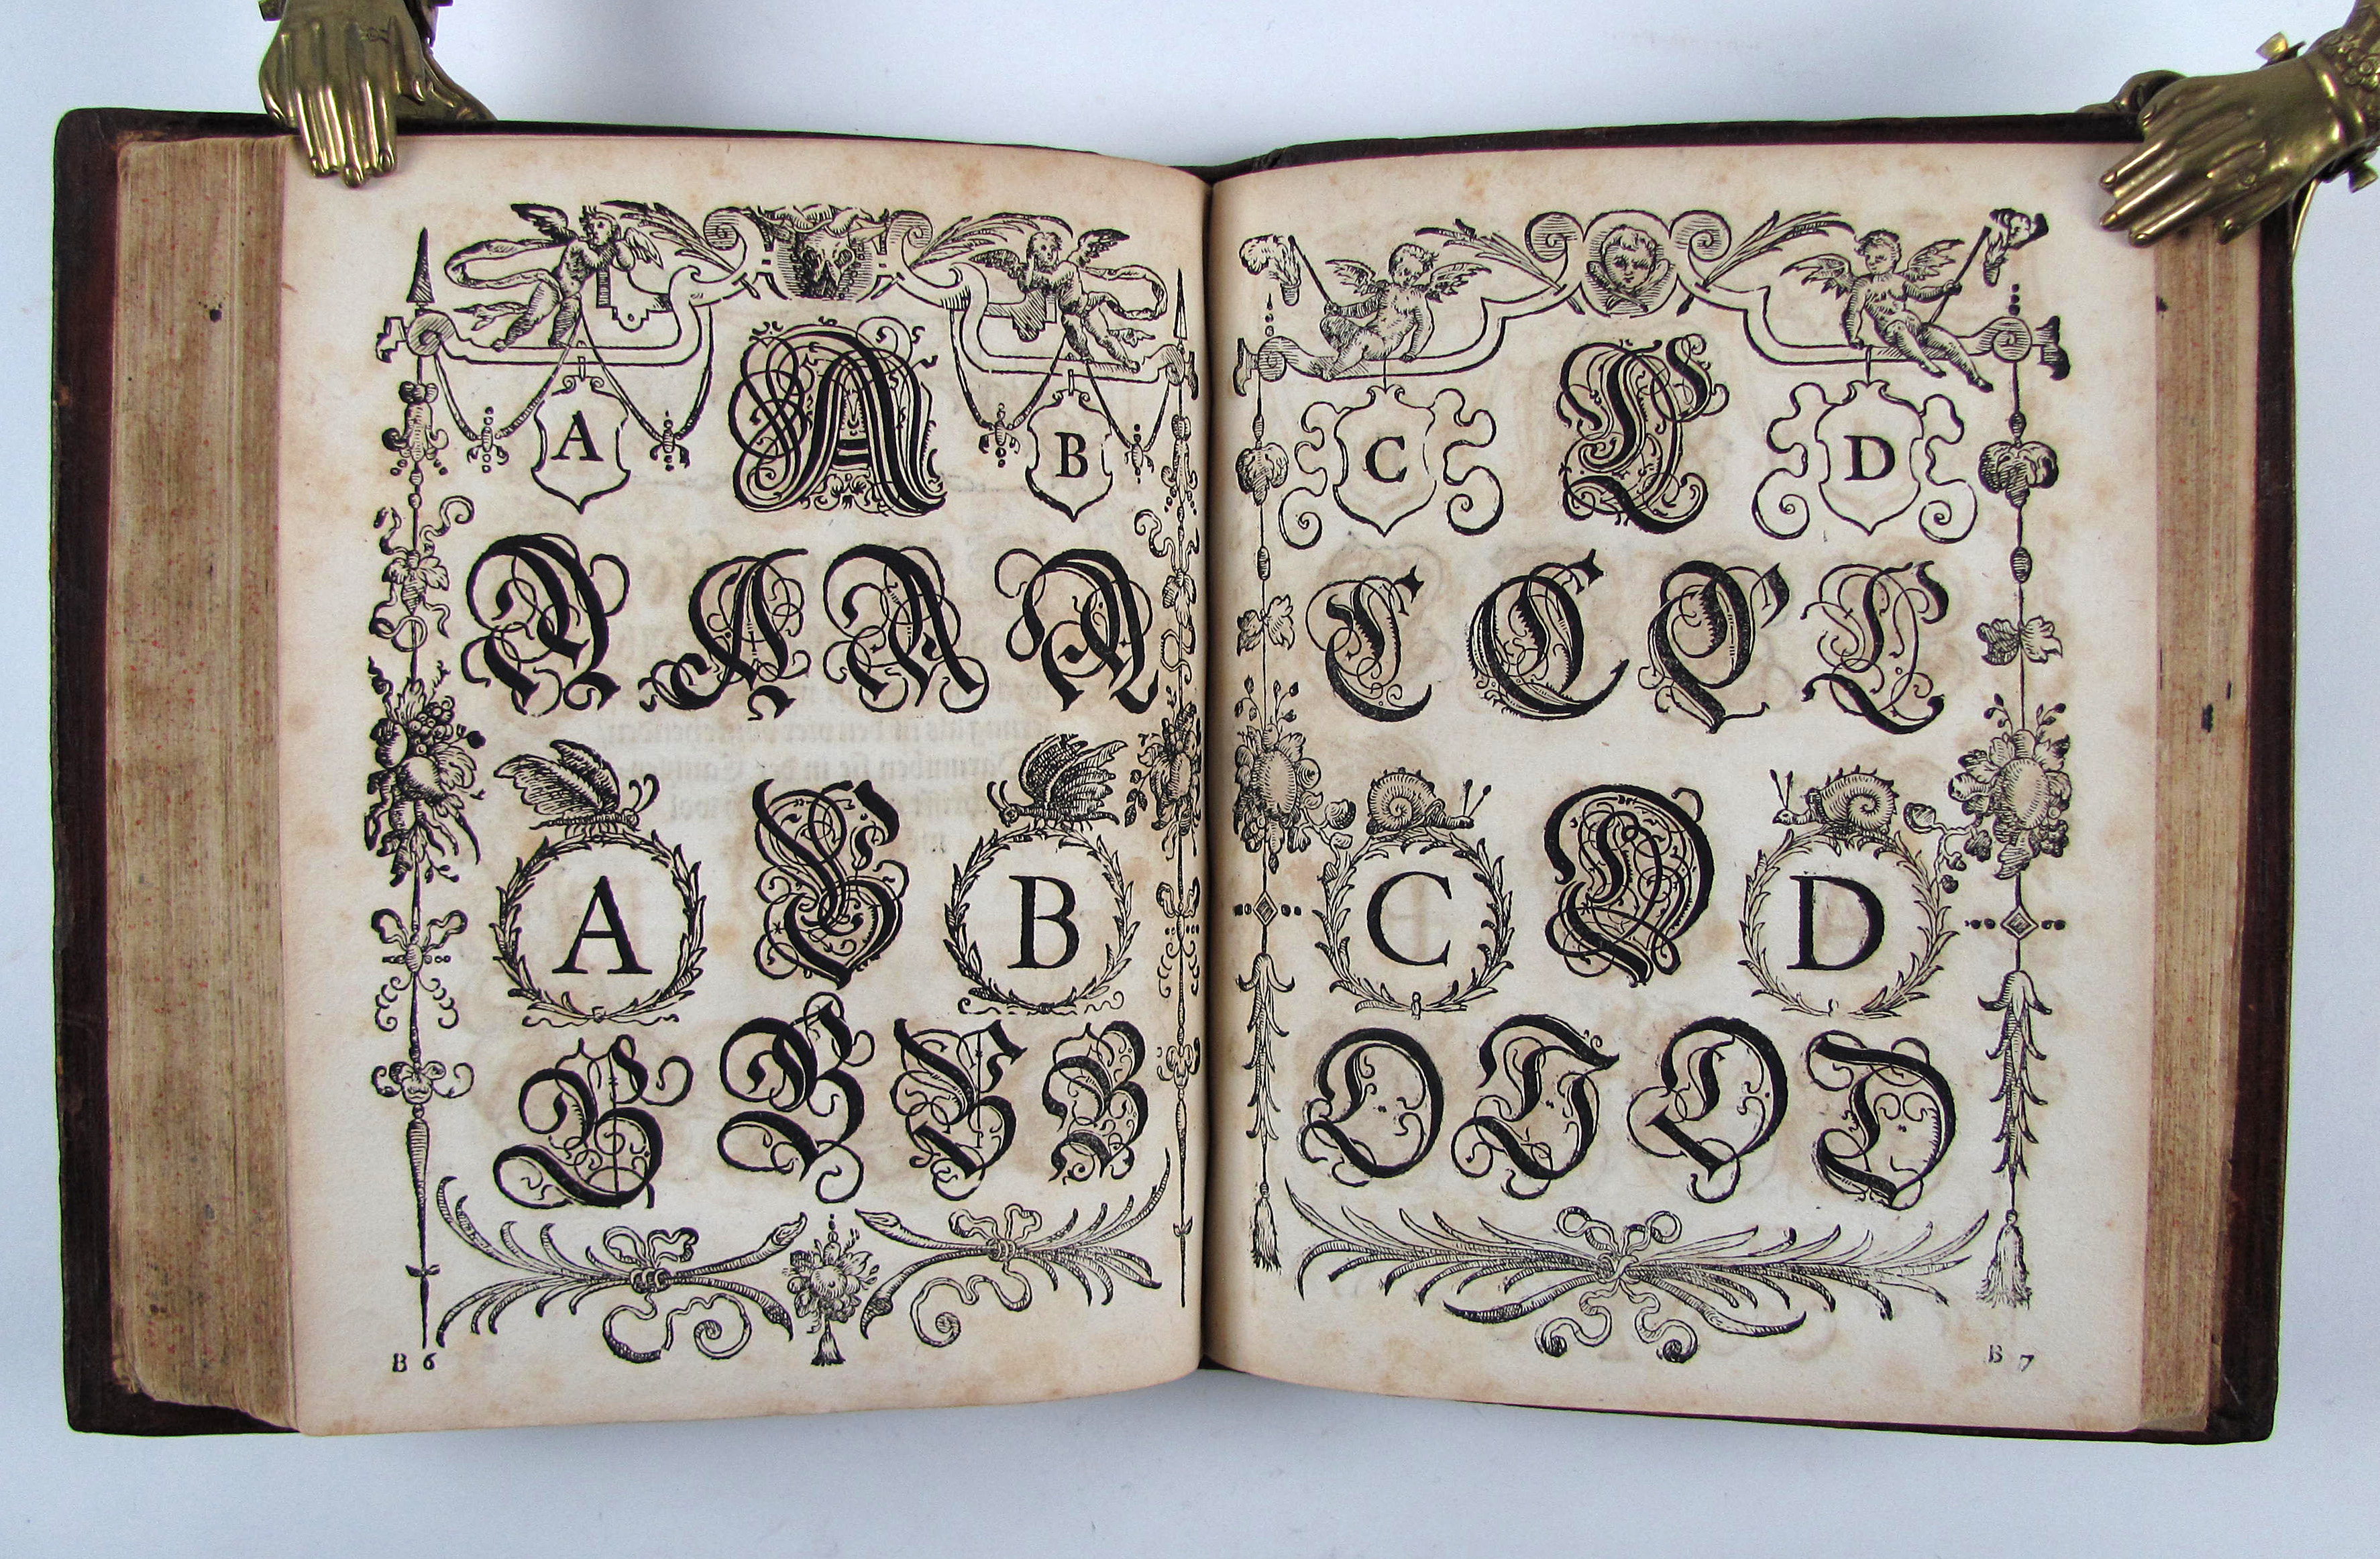 A A B
A A A A
A B B
B B B B
B 6
C C D
C C C C
C D D
D D D D
B 7